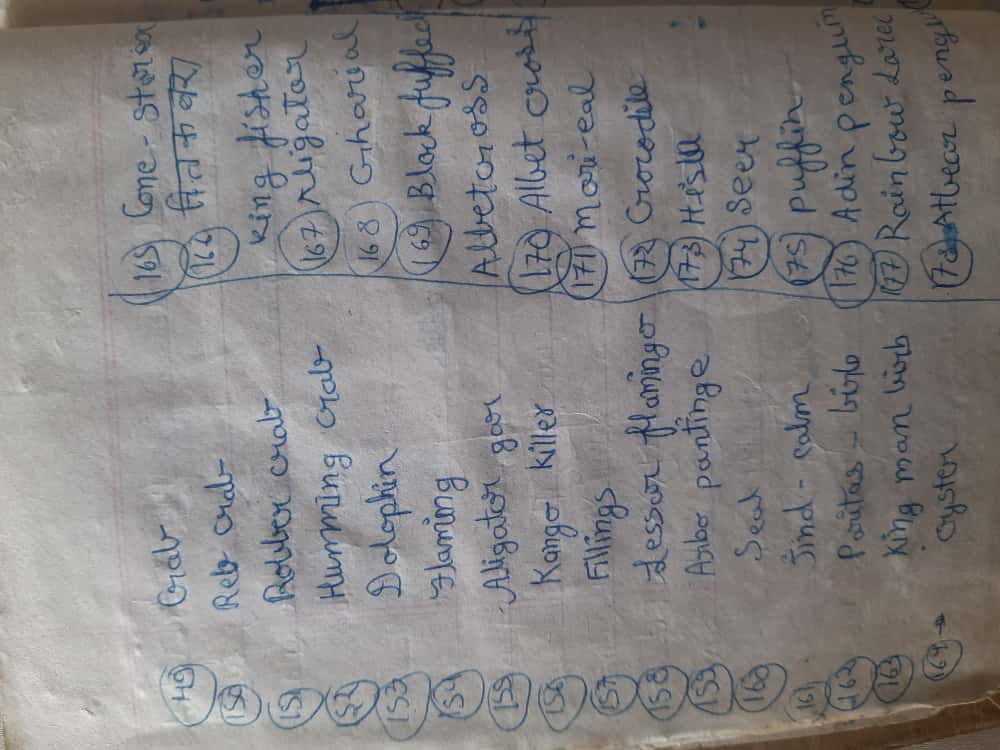 149 Crab
150 Reb crab
151 Robber crab
152 Humming crab
153 Dolophin
154 Flaming
155 Aligator gar
156 Kango killer
157 Fillings
158 Lessar flamingo
159 Asbar pantinge
160 Seal
161 Jind-calm
162 Paritas-birb
163 King man birb
164 → Oyster
165 Cone-Starian
166 मिलकवर
King fisher
167 Aligator
168 Gharial
169 Black fuffed
Albetaross
170 Albet cross
171 Mori-eal
172 Crorodile
173
174 Seer
175 Puffin
176 Adin penguin
177 Rainbow Lorei
178 Atbear pengui